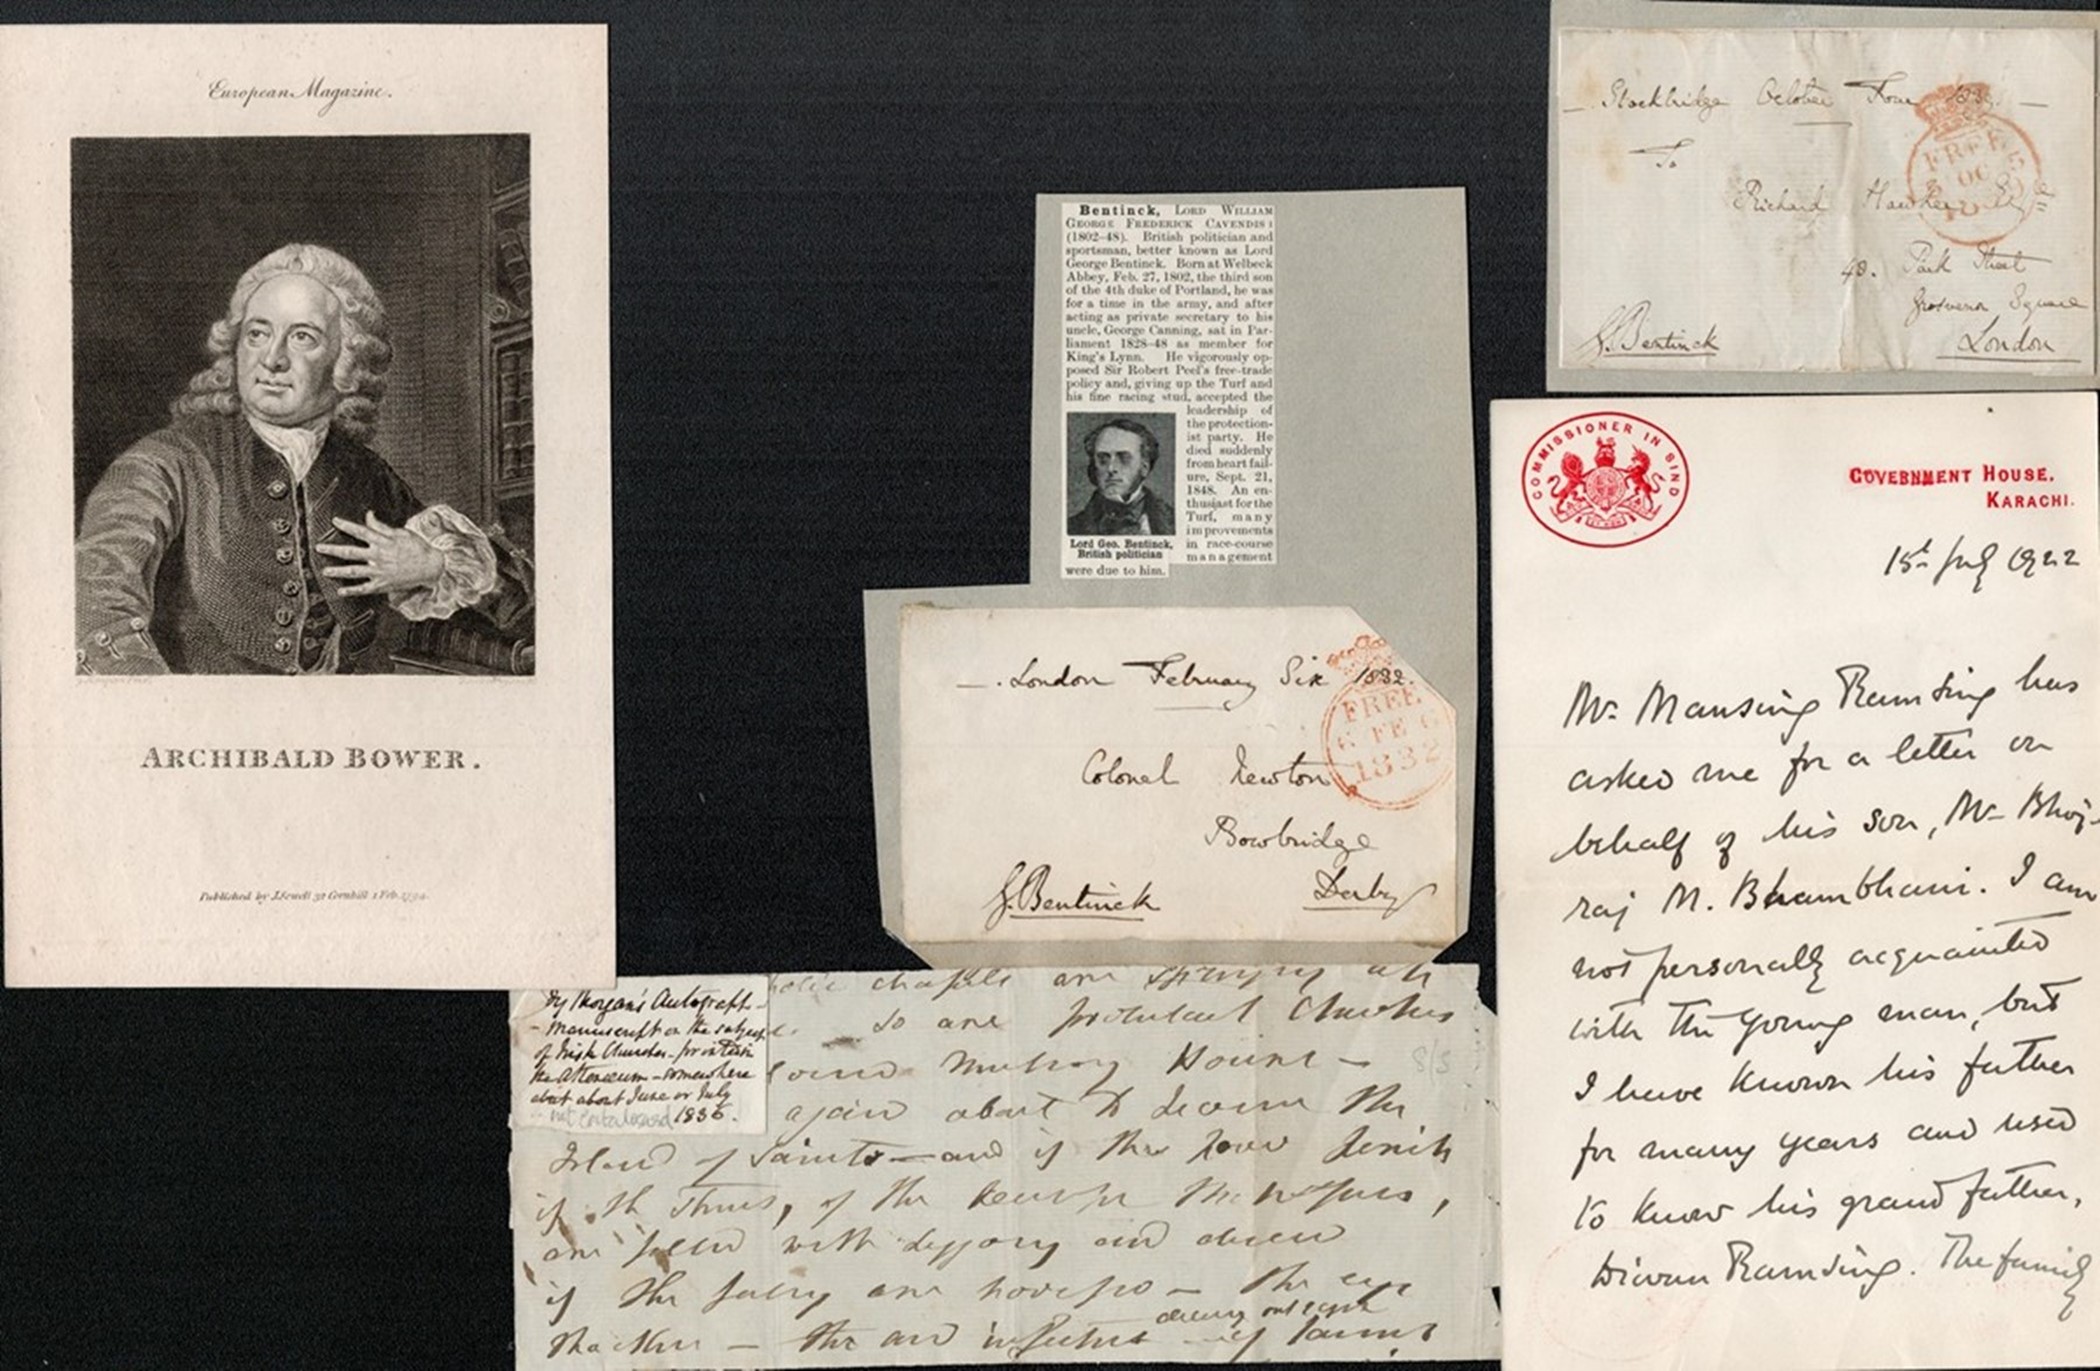 European Magazine.
ARCHIBALD BOWER.
Published by J.Sewell 32 Cornhill 1 Feb. 1794.
Bentinck, LORD WILLIAM
GEORGE FREDERICK CAVENDIS
(1802–48). British politician and
sportsman, better known as Lord
George Bentinck. Born at Welbeck
Abbey, Feb. 27, 1802, the third son
of the 4th duke of Portland, he was
for a time in the army, and after
acting as private secretary to his
uncle, George Canning, sat in Par-
liament 1828–48 as member for
King's Lynn. He vigorously op-
posed Sir Robert Peel's free-trade
policy and, giving up the Turf and
his fine racing stud, accepted the
leadership of
the protection-
ist party. He
died suddenly
from heart fail-
ure, Sept. 21,
1848. An en-
thusiast for the
Turf, many
improvements
in race-course
management
were due to him.
Lord Geo. Bentinck,
British politician
London February Six 1832.
FREE
FE 6
1832
Colonel Newton
Bowbridge
Derby
G. Bentinck
Stockbridge October Four
FREE
OC
To
Richard Esq
48. Park Street
Grosvenor Square
London
G. Bentinck
COMMISSIONER IN SIND
GOVERNMENT HOUSE.
KARACHI.
15th July 1922
Mr. Mansing Ramsing has
asked me for a letter on
behalf of his son, Mr Bhoj-
raj M. Bhambhani. I am
not personally acquainted
with the young man, but
I have known his father
for many years and used
to know his grandfather,
Diwan Ramsing. The family
Morgan's Autograph
- Manuscript on the subject
of Irish Churches - for
the Athenaeum - somewhere
about June or July
not catalogued 1836.
chapels are springing
so are protestant Churches
8/3
again about to become the
Island of Saints — and if the
of the
are filled with
of the are — the
— the and of